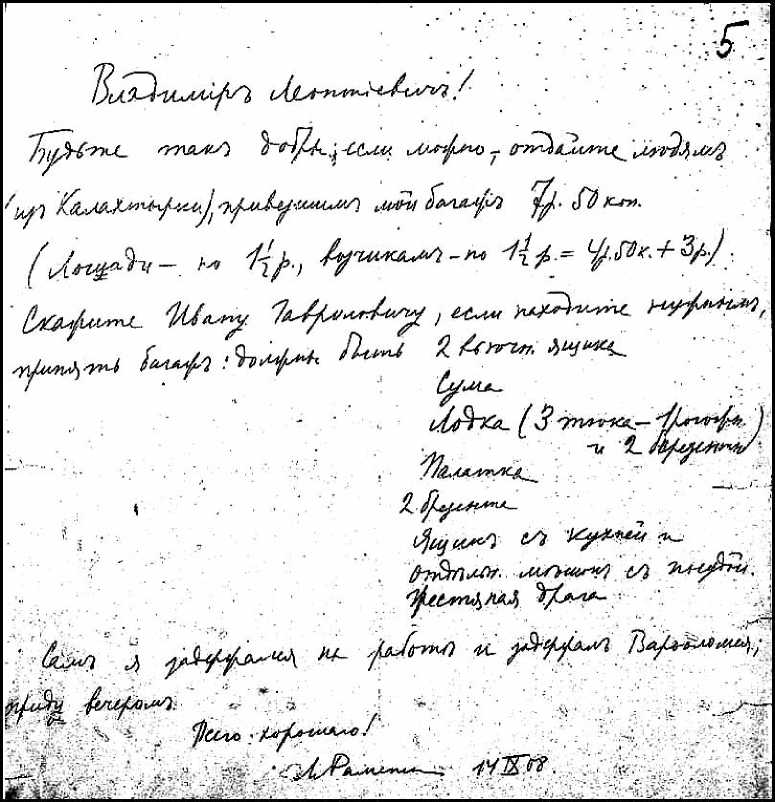 5
Владимiръ Леонтiевичъ!
Будьте такъ добры, если можно, – отдайте людямъ
(изъ Калахтырки), привезшимъ мой багажъ 7р. 50 коп.
(Лошади – по 1 1/2 р., возчикамъ – по 1 1/2 р. = 4р. 50к. + 3р.)
Скажите Ивану Гавриловичу, если находите нужнымъ,
принять багажъ: должны быть 2 вьючн. ящика
Сума
Лодка (3 тюка – 1 рогожн.
и 2 брезентн.)
Палатка
2 брезента
Ящикъ съ кухней и
отдѣльн. мѣшокъ съ посудой.
драга
Самъ я задержался на работѣ и задержалъ Варфоломея;
приду вечеромъ.
Всего хорошаго!
14 IX 08.